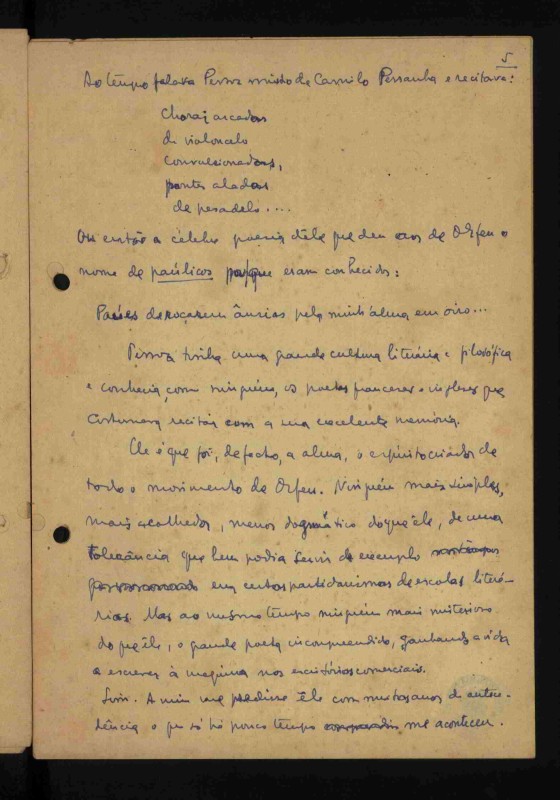 5
Ao tempo falava Pessoa muito de Camilo Pessanha e recitava:
Chorai arcadas
de violoncelo
convulsionadas,
pontes aladas
de pesadelo....
Ou então a célebre poesia dêle que deu aos de Orfeu o
nome de paúlicos porque eram conhecidos:
Paúes de roçarem ânsias pela minh'alma em oiro...
Pessoa tinha uma grande cultura literária e filosófica
e conhecia, como ninguém, os poetas franceses e ingleses que
costumava recitar com a sua excelente memória.
Ele é que foi, de facto, a alma, o espírito criador de
todo o movimento de Orfeu. Ninguém mais simples,
mais acolhedor, menos dogmático do que êle, de uma
tolerância que bem podia servir de exemplo
em certos partidarismos de escolas literá-
rias. Mas ao mesmo tempo ninguém mais misterioso
do que êle, o grande poeta incompreendido, ganhando a vida
a escrever à maquina nos escritórios comerciais.
Sim. A mim me predisse êle com muitos anos de antece-
dência o que só há pouco tempo me aconteceu.